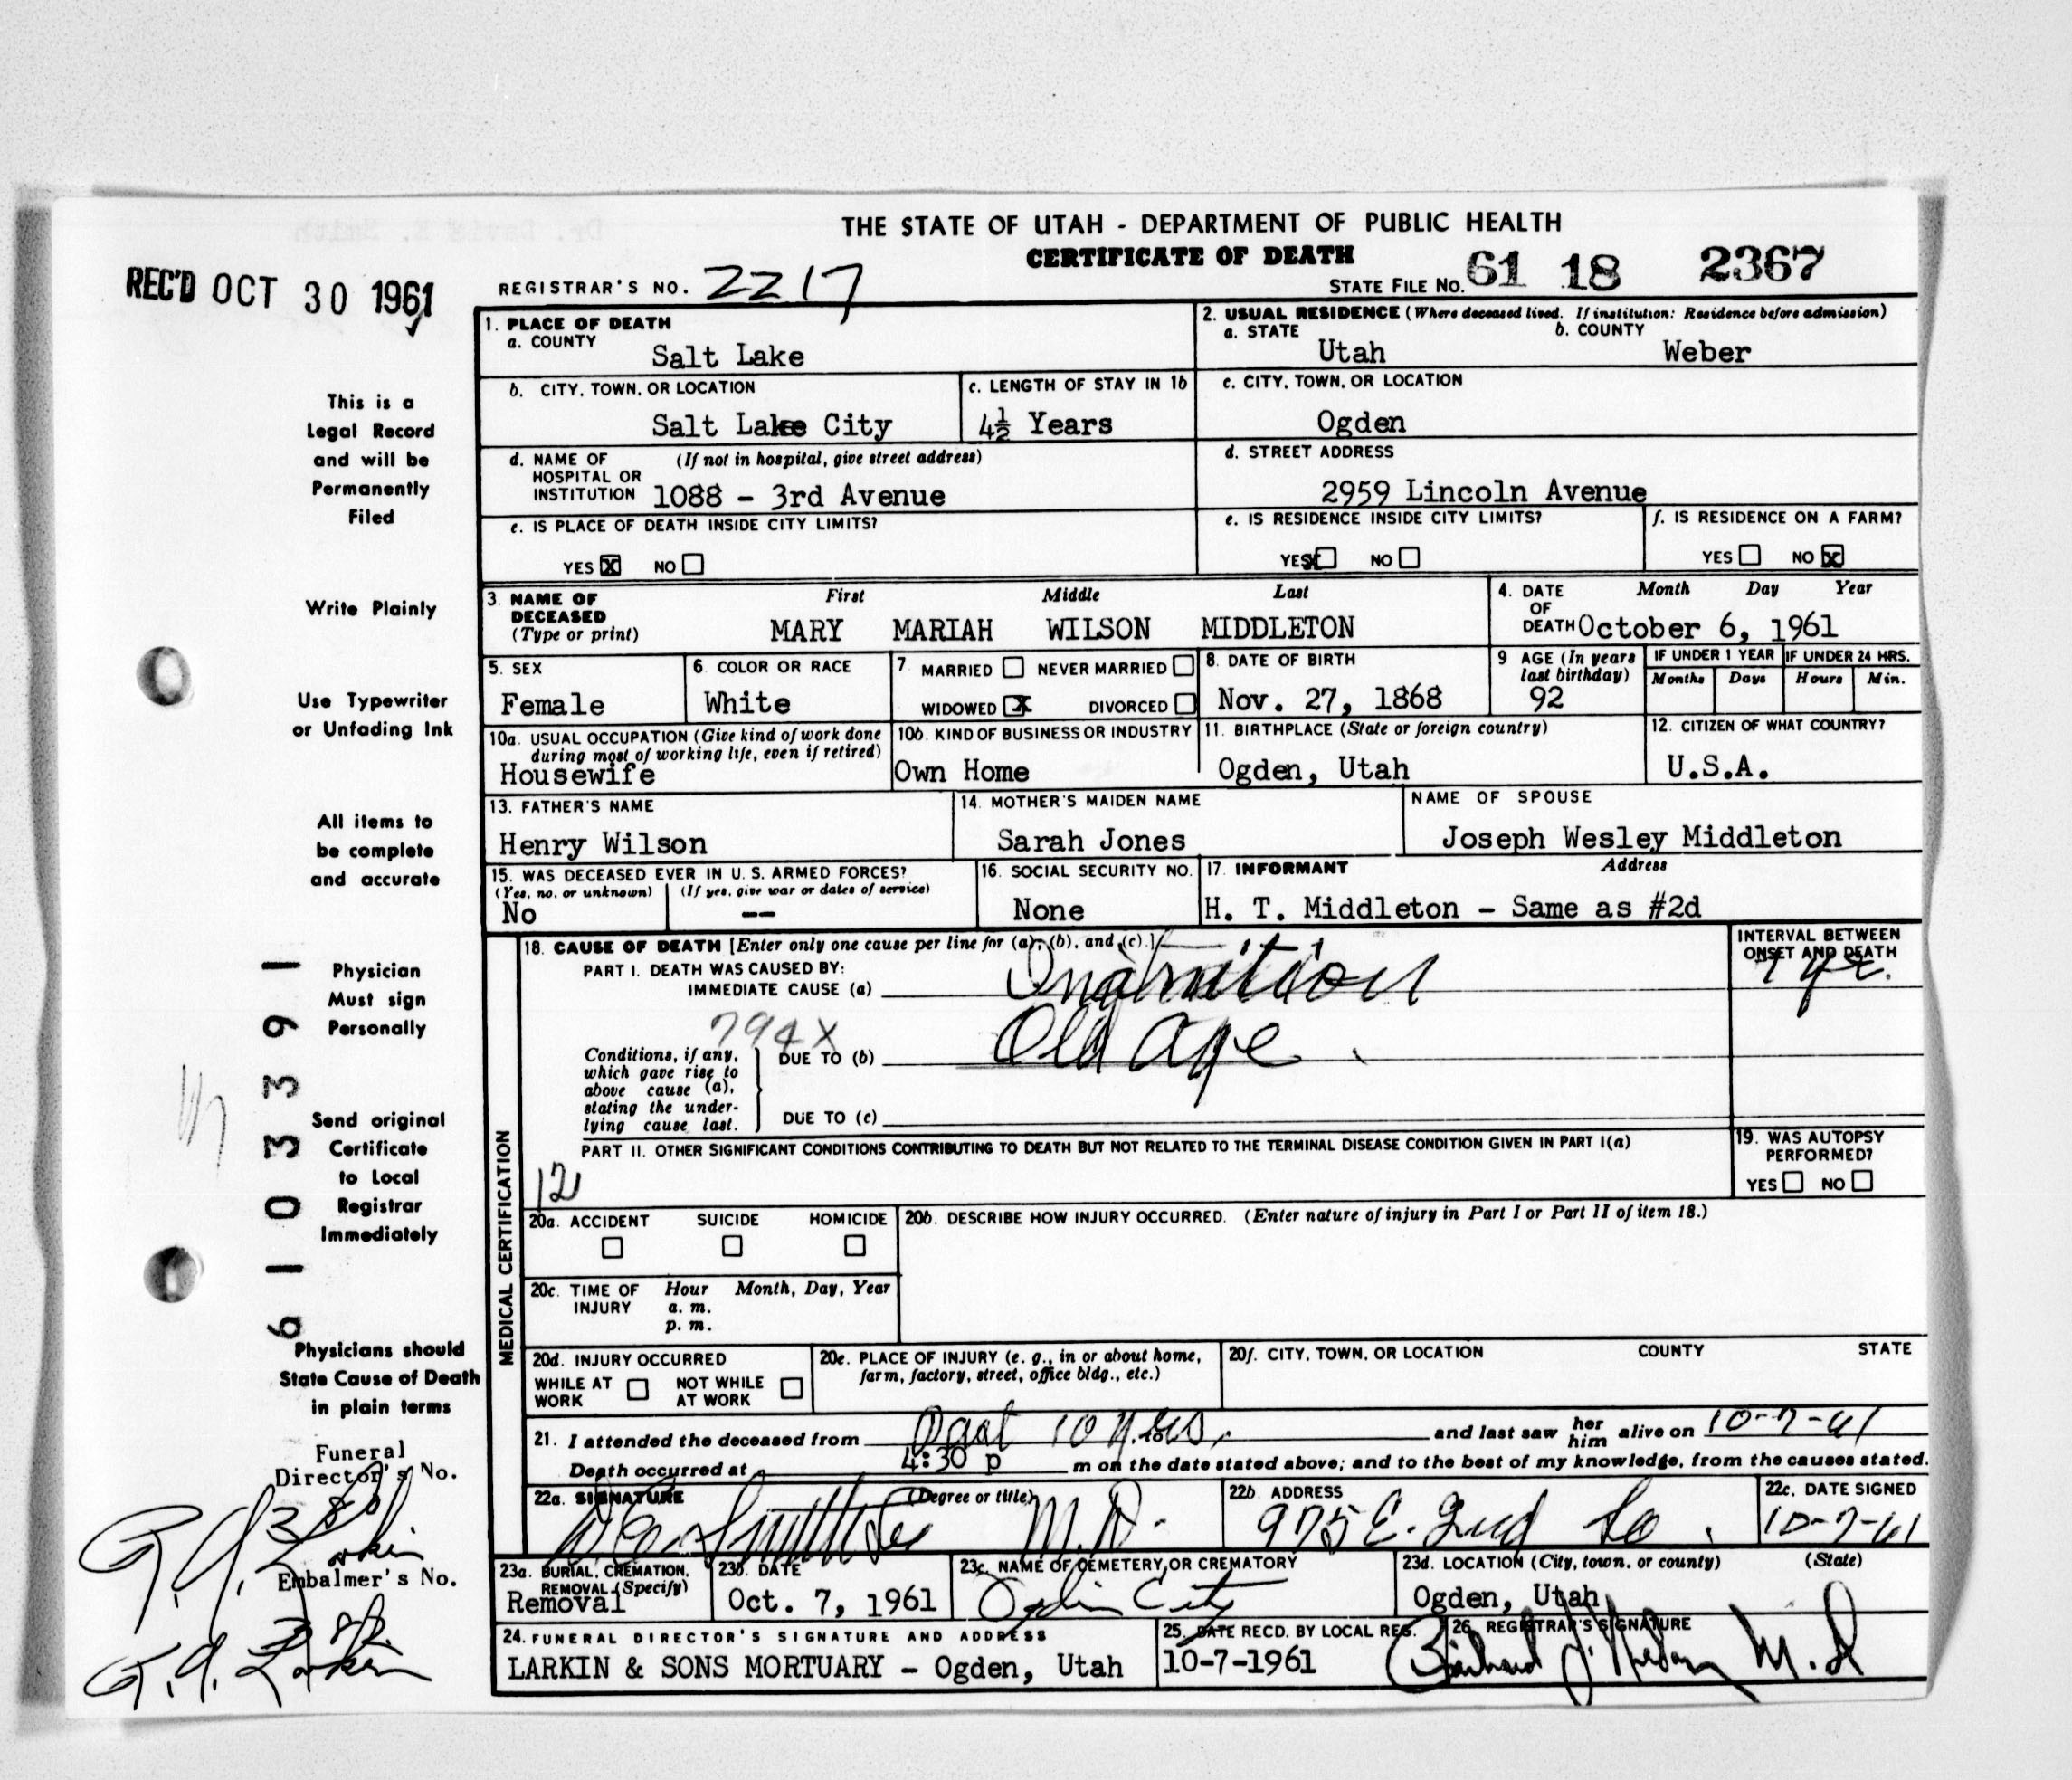 THE STATE OF UTAH - DEPARTMENT OF PUBLIC HEALTH
CERTIFICATE OF DEATH
REC'D OCT 30 1961
REGISTRAR'S NO. 2217
STATE FILE NO. 61 18 2367
1. PLACE OF DEATH
a. COUNTY
Salt Lake
2. USUAL RESIDENCE (Where deceased lived. If institution: Residence before admission)
a. STATE b. COUNTY
Utah Weber
b. CITY, TOWN, OR LOCATION
Salt Lake City
c. LENGTH OF STAY IN 1b
4½ Years
c. CITY, TOWN, OR LOCATION
Ogden
d. NAME OF (If not in hospital, give street address)
HOSPITAL OR
INSTITUTION 1088 - 3rd Avenue
d. STREET ADDRESS
2959 Lincoln Avenue
e. IS PLACE OF DEATH INSIDE CITY LIMITS?
YES X NO
e. IS RESIDENCE INSIDE CITY LIMITS?
YES X NO
f. IS RESIDENCE ON A FARM?
YES NO X
3. NAME OF DECEASED
(Type or print)
First Middle Last
MARY MARIAH WILSON MIDDLETON
4. DATE OF DEATH Month Day Year
October 6, 1961
5. SEX
Female
6. COLOR OR RACE
White
7. MARRIED NEVER MARRIED
WIDOWED X DIVORCED
8. DATE OF BIRTH
Nov. 27, 1868
9 AGE (In years last birthday)
92
IF UNDER 1 YEAR IF UNDER 24 HRS.
Months Days Hours Min.
10a. USUAL OCCUPATION (Give kind of work done
during most of working life, even if retired)
Housewife
10b. KIND OF BUSINESS OR INDUSTRY
Own Home
11. BIRTHPLACE (State or foreign country)
Ogden, Utah
12. CITIZEN OF WHAT COUNTRY?
U.S.A.
13. FATHER'S NAME
Henry Wilson
14. MOTHER'S MAIDEN NAME
Sarah Jones
NAME OF SPOUSE
Joseph Wesley Middleton
15. WAS DECEASED EVER IN U.S. ARMED FORCES?
(Yes, no, or unknown) (If yes, give war or dates of service)
No --
16. SOCIAL SECURITY NO.
None
17. INFORMANT Address
H. T. Middleton - Same as #2d
MEDICAL CERTIFICATION
18. CAUSE OF DEATH [Enter only one cause per line for (a), (b), and (c).]
PART I. DEATH WAS CAUSED BY:
IMMEDIATE CAUSE (a) Inanition
INTERVAL BETWEEN
ONSET AND DEATH
1 yr.
794X
Conditions, if any,
which gave rise to
above cause (a),
stating the under-
lying cause last.
DUE TO (b) Old Age
DUE TO (c)
PART II. OTHER SIGNIFICANT CONDITIONS CONTRIBUTING TO DEATH BUT NOT RELATED TO THE TERMINAL DISEASE CONDITION GIVEN IN PART I(a)
19. WAS AUTOPSY
PERFORMED?
YES NO
12
20a. ACCIDENT SUICIDE HOMICIDE
20b. DESCRIBE HOW INJURY OCCURRED. (Enter nature of injury in Part I or Part II of item 18.)
20c. TIME OF INJURY Hour Month, Day, Year
a. m.
p. m.
20d. INJURY OCCURRED
WHILE AT WORK NOT WHILE AT WORK
20e. PLACE OF INJURY (e. g., in or about home,
farm, factory, street, office bldg., etc.)
20f. CITY, TOWN, OR LOCATION COUNTY STATE
21. I attended the deceased from past 10 yrs. to and last saw her him alive on 10-7-61
Death occurred at 4:30 p m on the date stated above; and to the best of my knowledge, from the causes stated.
22a. SIGNATURE (Degree or title)
Smith M.D.
22b. ADDRESS
975 E. 2nd So.
22c. DATE SIGNED
10-7-61
23a. BURIAL, CREMATION,
REMOVAL (Specify)
Removal
23b. DATE
Oct. 7, 1961
23c. NAME OF CEMETERY OR CREMATORY
Ogden City
23d. LOCATION (City, town, or county) (State)
Ogden, Utah
24. FUNERAL DIRECTOR'S SIGNATURE AND ADDRESS
LARKIN & SONS MORTUARY - Ogden, Utah
25. DATE RECD. BY LOCAL REG.
10-7-1961
26. REGISTRAR'S SIGNATURE
M.D.
This is a
Legal Record
and will be
Permanently
Filed
Write Plainly
Use Typewriter
or Unfading Ink
All items to
be complete
and accurate
Physician
Must sign
Personally
Send original
Certificate
to Local
Registrar
Immediately
Physicians should
State Cause of Death
in plain terms
Funeral
Director's No.
380
Larkin
Embalmer's No.
Larkin
6103391